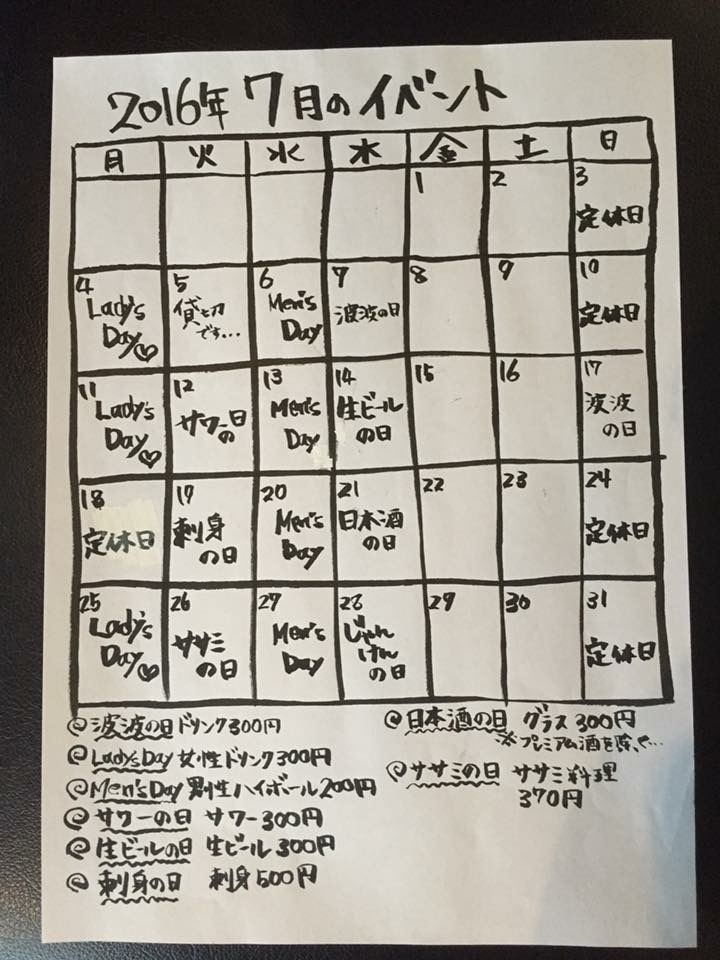 2016年 7月のイベント
月 火 水 木 金 土 日
1 2 3
定休日
4 5 6 7 8 9 10
Lady's Day♡ 貸切です... Men's Day 波波の日 定休日
11 12 13 14 15 16 17
Lady's Day♡ サワーの日 Men's Day 生ビールの日 波波の日
18 19 20 21 22 23 24
定休日 刺身の日 Men's Day 日本酒の日 定休日
25 26 27 28 29 30 31
Lady's Day♡ ササミの日 Men's Day じゃんけんの日 定休日
波波の日 ドリンク300円
Lady's Day 女性ドリンク300円
Men's Day 男性ハイボール200円
サワーの日 サワー300円
生ビールの日 生ビール300円
刺身の日 刺身500円
日本酒の日 グラス300円
※プレミアム酒を除く...
ササミの日 ササミ料理
370円